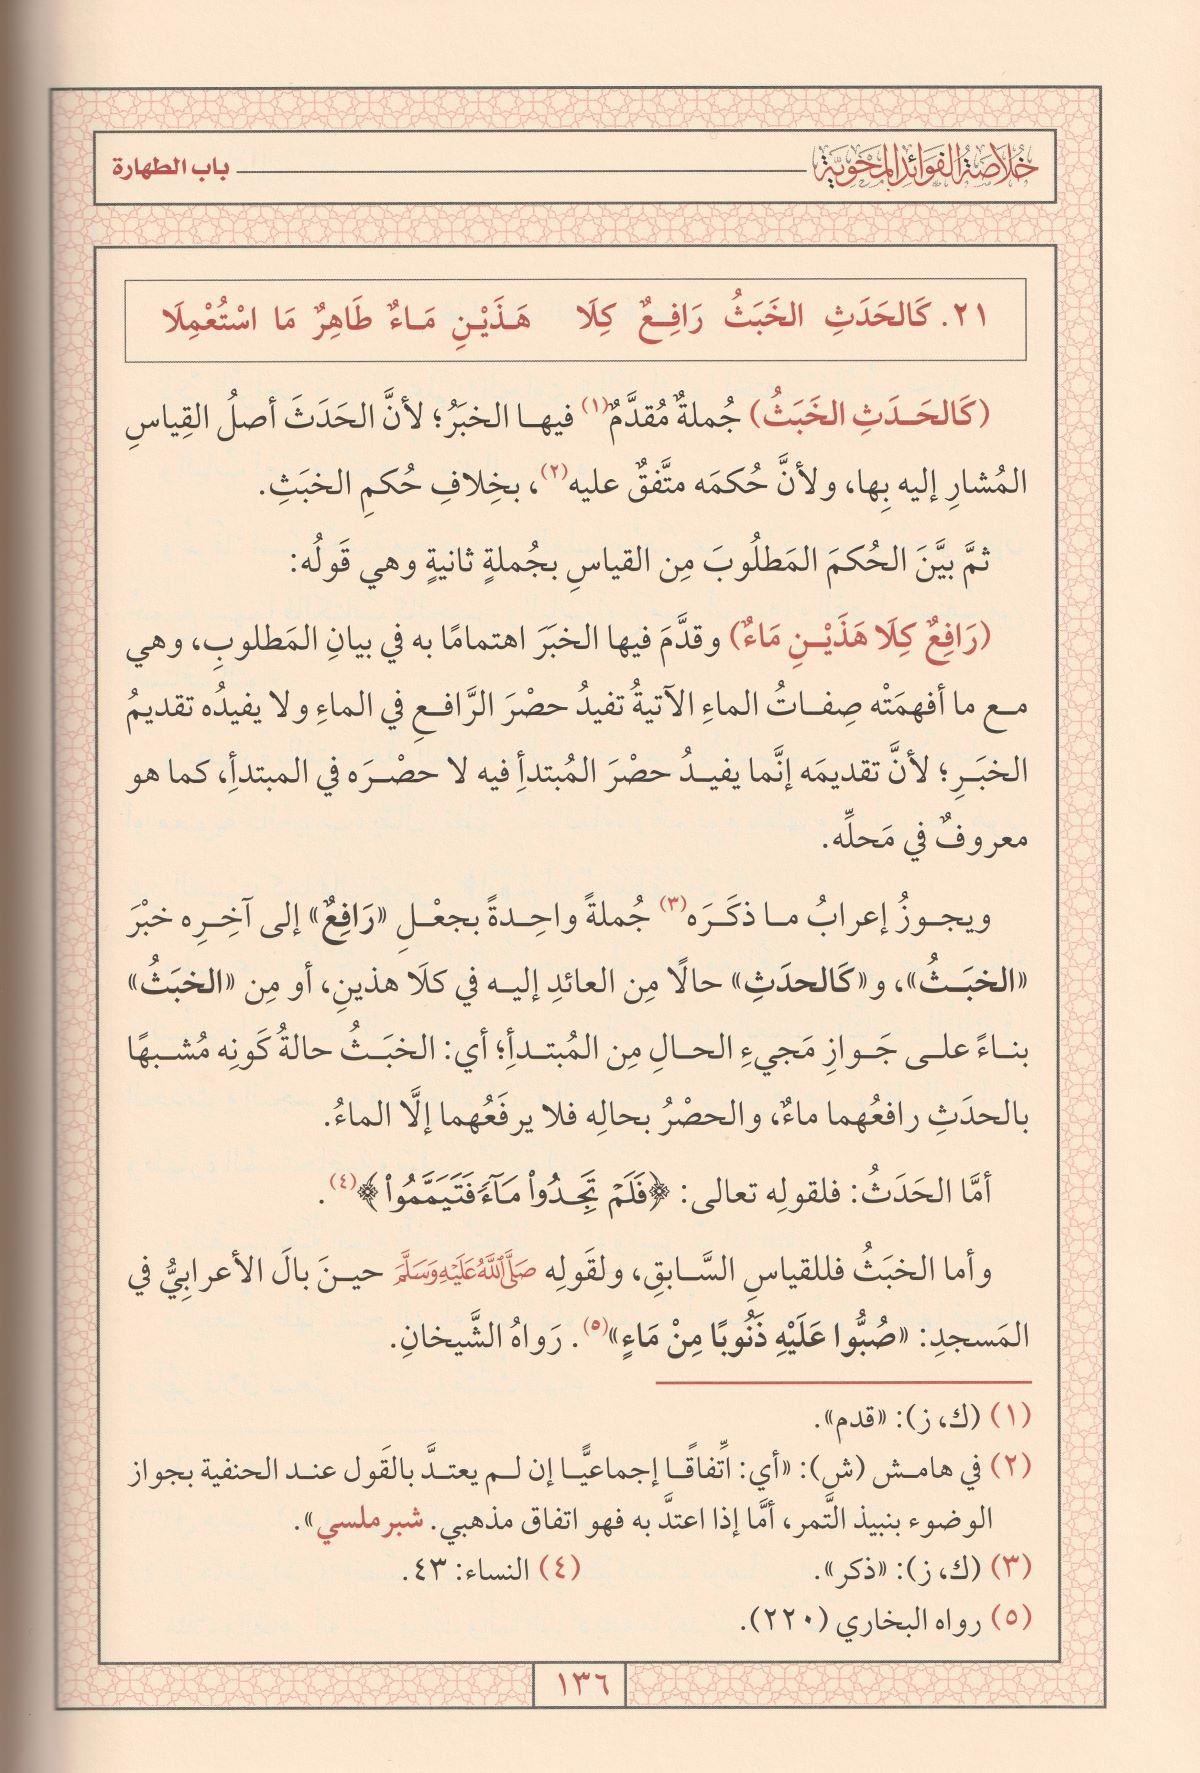 خُلَاصَةُ الفَوَائِدِ المَحْوِيَّة
باب الطهارة
٢١. كَالحَدَثِ الخَبَثُ رَافِعٌ كِلَا هَذَيْنِ مَاءٌ طَاهِرٌ مَا اسْتُعْمِلَا
(كَالحَدَثِ الخَبَثُ) جُملةٌ مُقدَّمٌ(١) فيها الخبَرُ؛ لأنَّ الحَدَثَ أصلُ القِياسِ
المُشارِ إليه بِها، ولأنَّ حُكمَه متَّفقٌ عليه(٢)، بخِلافِ حُكمِ الخبَثِ.
ثمَّ بيَّنَ الحُكمَ المَطلُوبَ مِن القياسِ بجُملةٍ ثانيةٍ وهي قَولُه:
(رَافِعٌ كِلَا هَذَيْنِ مَاءٌ) وقدَّمَ فيها الخبَرَ اهتمامًا به في بيانِ المَطلوبِ، وهي
مع ما أفهمَتْه صِفاتُ الماءِ الآتيةُ تفيدُ حصْرَ الرَّافعِ في الماءِ ولا يفيدُه تقديمُ
الخبَرِ؛ لأنَّ تقديمَه إنَّما يفيدُ حصْرَ المُبتدأِ فيه لا حصْرَه في المبتدأِ، كما هو
معروفٌ في مَحلِّه.
ويجوزُ إعرابُ ما ذكَرَه(٣) جُملةً واحِدةً بجعْلِ «رَافِعٌ» إلى آخِرِه خبْرَ
«الخبَثُ»، و«كَالحدَثِ» حالًا مِن العائدِ إليه في كلَا هذينِ، أو مِن «الخبَثُ»
بناءً على جَوازِ مَجيءِ الحالِ مِن المُبتدأِ؛ أي: الخبَثُ حالةُ كَونِه مُشبهًا
بالحدَثِ رافعُهما ماءٌ، والحصْرُ بحالِه فلا يرفَعُهما إلَّا الماءُ.
أمَّا الحَدَثُ: فلقولِه تعالى: ﴿فَلَمْ تَجِدُواْ مَآءً فَتَيَمَّمُواْ﴾(٤).
وأما الخبَثُ فللقياسِ السَّابقِ، ولقَولِه صَلَّى اللَّهُ عَلَيْهِ وَسَلَّمَ حينَ بالَ الأعرابِيُّ في
المَسجدِ: «صُبُّوا عَلَيْهِ ذَنُوبًا مِنْ مَاءٍ»(٥). رَواهُ الشَّيخانِ.
(١) (ك، ز): «قدم».
(٢) في هامش (ش): «أي: اتِّفاقًا إجماعيًّا إن لم يعتدَّ بالقَول عند الحنفية بجواز
الوضوء بنبيذ التَّمر، أمَّا إذا اعتدَّ به فهو اتفاق مذهبي. شبرملسي».
(٣) (ك، ز): «ذكر». (٤) النساء: ٤٣.
(٥) رواه البخاري (٢٢٠).
١٣٦